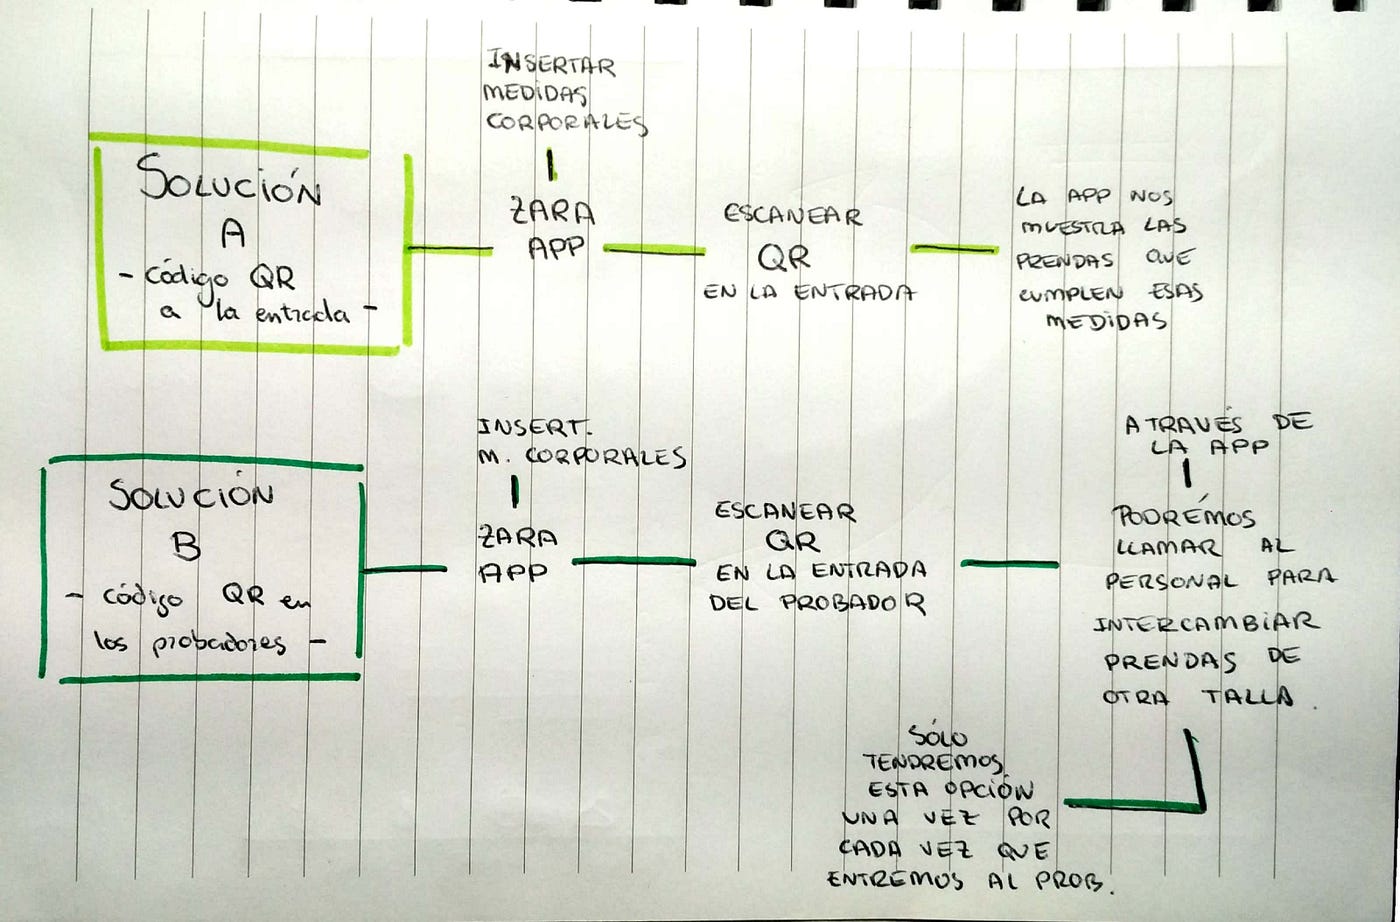 SOLUCIÓN
A
- código QR
a la entrada -
INSERTAR
MEDIDAS
CORPORALES
ZARA
APP
ESCANEAR
QR
EN LA ENTRADA
LA APP NOS
MUESTRA LAS
PRENDAS QUE
CUMPLEN ESAS
MEDIDAS
SOLUCIÓN
B
- código QR en
los probadores -
INSERT.
M. CORPORALES
ZARA
APP
ESCANEAR
QR
EN LA ENTRADA
DEL PROBADOR
A TRAVÉS DE
LA APP
PODRÉMOS
LLAMAR AL
PERSONAL PARA
INTERCAMBIAR
PRENDAS DE
OTRA TALLA.
SÓLO
TENDREMOS
ESTA OPCIÓN
UNA VEZ POR
CADA VEZ QUE
ENTREMOS AL PROB.